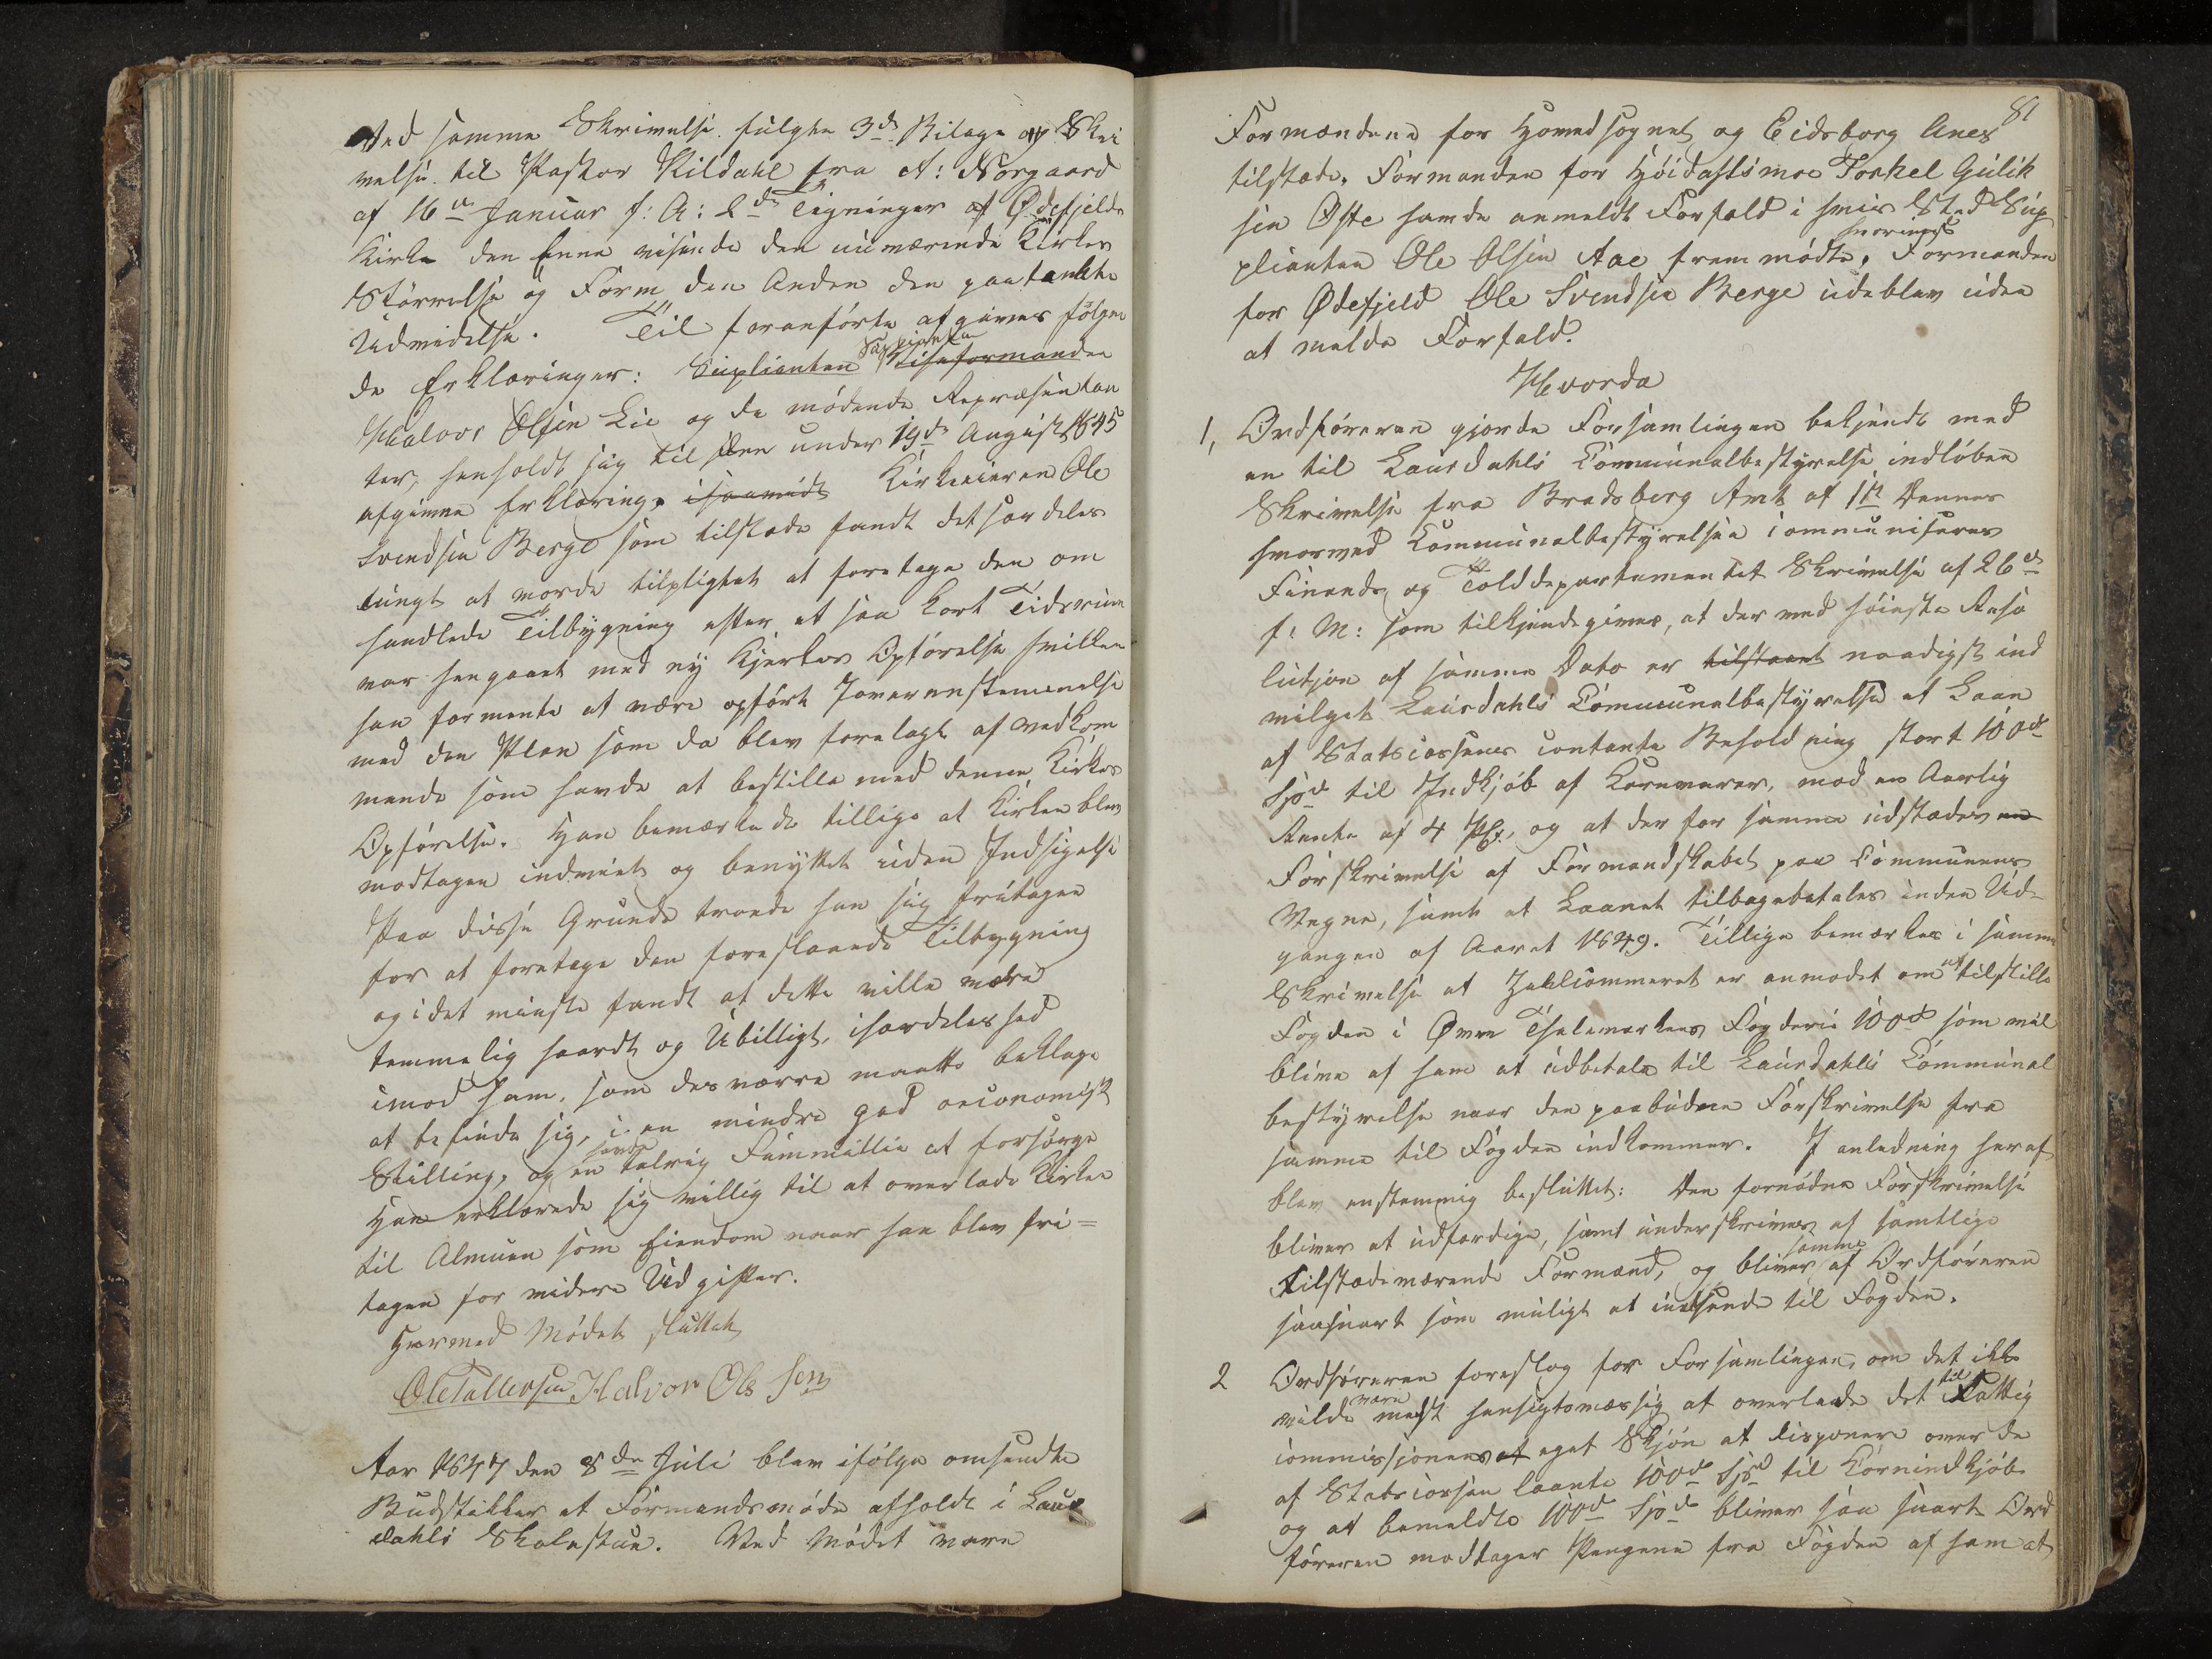 Ved samme Skrivelse fulgte 3de Bilage og Skri
velse til Pastor Kildahl fra A: Norgaard
af 16de Januar f: A: 2de Tegninger af Ødefjelds
Kirke den Eene visende den nuværende Kirkes
Störrelse og Form den Anden den paatænkte
Udvidelse. Til foranförte afgives fölgen
de Erklæringer: Suplianten Viseformanden
Suplianten
Halvor Olsen Lie og de mödende Repræsentan
ter, henholdt sig til den under 19de August 1845
afgivne Erklæring. Kirkeeieren Ole
Svendsen Berge som tilstæde fandt det særdeles
tungt at vorde tilpligtet at foretage den om
handlede Tilbygning efter et saa kort Tidsrum
var hengaaet med ny Kjerkes Opförelse hvilken
han formente at være opfört i overenstemmelse
med den Plan som da blev forelagt af vedkom
mende som havde at bestille med denne Kirkes
Opförelse. Han bemærkede tillige at Kirken blev
modtagen indviet og benyttet uden Indsigelse
Paa disse Grunde troede han sig fritagen
for at foretage den foreslaaede Tilbygning
og i det minste fandt at dette ville være
temmelig haardt og Ubilligt, isærdeleshed
imod ham, som desværre maatte beklage
at befinde sig, i en mindre god oeconomisk
Stilling, og en talrig Fammillie at forsörge
havde
Han erklærede sig villig til at overlade Kirken
til Almuen som Eiendom naar han blev fri=
tagen for videre Udgifter.
Hermed Mödet sluttet
Ole Tallevsen Halvor Olssen
Aar 1847 den 8de Juli blev ifölge omsendte
Budstikker et Formandsmöde afholdt i Laur
dahls Skolestue. Ved Mödet vare
81
Formændene for Hovedsognet og Eidsborg Anex
tilstæde. Formanden for Höidalsmoe Torkel Gulik
sen Ofte havde anmeldt Forfald i hvis Sted Sup
plianten Ole Olsen Aae fremmödte. Formanden
hvorimod
for Ødefjeld Ole Svendsen Berge udeblev uden
at melde Forfald.
Hvorda
1, Ordföreren gjorde Forsamlingen bekjendt med
en til Laurdahls Communalbestyrelse indlöben
Skrivelse fra Bradsberg Amt af 1ste Dennes
hvorved Communalbestyrelsen communiseres
Finands og Tolddepartementet Skrivelse af 26de
f: M: som tilkjendegiver, at der ved höieste Reso
lutjon af samme Dato er tilstaaet naadigst ind
vilget Laurdahls Communalbestyrelse et Laan
af Statscassens contante Beholdning stort 100de
Spd til Indkjöb af Kornvarer, mod en Aarlig
Rente af 4 Pct, og at der for samme udstædes en
Forskrivelse af Formandskabet paa Communens
Vegne, samt at Laanet tilbagebetales inden Ud-
gangen af Aaret 1849. Tillige bemærkes i samme
Skrivelse at Zahlcammeret er anmodet om at tilstille
Fogden i Øvre Thelemarkens Fogderie 100d som vil
blive af ham at udbetale til Laurdahls Communal
bestyrelse naar den paabudne Forskrivelse fra
samme til Fogden indkommer. I anledning heraf
blev enstemmig besluttet: Den fornödne Forskrivelse
bliver at udfærdige, samt underskrives af samtlige
Tilstædeværende Formænd, og bliver af Ordföreren
samme
saasnart som muligt at indsende til Fogden.
2 Ordföreren foreslog for Forsamlingen, om det ikke
vilde være mest hensigtsmæssig at overlade det til Fattig
commissjonens eget Skjön at disponere over de
af Statscassen laante 100de Spd til Kornindkjöb
og at bemeldte 100de Spd bliver saa snart Ord
föreren modtager Pengene fra Fogden af ham at